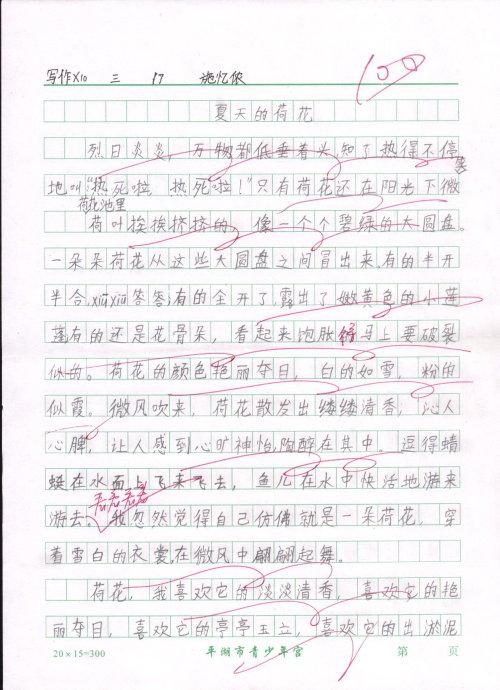 写作X10 三 17 施忆依
100
夏天的荷花
烈日炎炎，万物都低垂着头，知了热得不停
地叫："热死啦，热死啦！"只有荷花还在阳光下微笑
荷花池里
荷叶挨挨挤挤的，像一个个碧绿的大圆盘。
一朵朵荷花从这些大圆盘之间冒出来，有的半开
半合，xiūxiū答答；有的全开了，露出了嫩黄色的小莲
蓬有的还是花骨朵，看起来饱胀得马上要破裂
似的。荷花的颜色艳丽夺目，白的如雪，粉的
似霞。微风吹来，荷花散发出缕缕清香，沁人
心脾，让人感到心旷神怡，陶醉在其中。逗得蜻
蜓在水面上飞来飞去，鱼儿在水中快活地游来
游去。看着看着我忽然觉得自己仿佛就是一朵荷花，穿
着雪白的衣裳，在微风中翩翩起舞。
荷花，我喜欢它的淡淡清香，喜欢它的艳
丽夺目，喜欢它的亭亭玉立，喜欢它的出淤泥
20×15=300 平湖市青少年宫 第 页